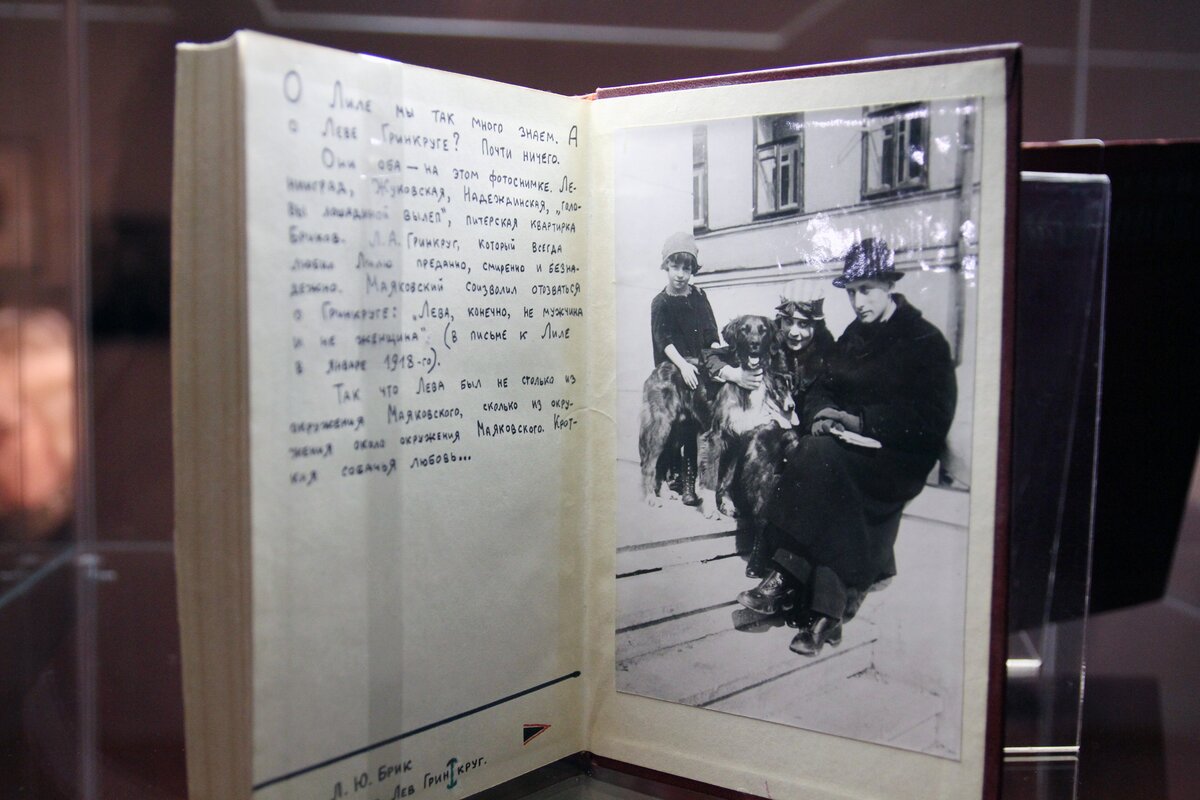 О Лиле мы так много знаем. А
о Леве Гринкруге? Почти ничего.
Они оба — на этом фотоснимке. Ле-
нинград, Жуковская, Надеждинская, „голо-
вы лошадиной вылеп", питерская квартирка
Бриков. Л.А. Гринкруг, который всегда
любил Лилю преданно, смиренно и безна-
дежно. Маяковский соизволил отозваться
о Гринкруге: „Лева, конечно, не мужчина
и не женщина" (в письме к Лиле
в январе 1918-го).
Так что Лева был не столько из
окружения Маяковского, сколько из окру-
жения около окружения Маяковского. Крот-
кая собачья любовь...
Л. Ю. Брик
Лев Гринкруг.